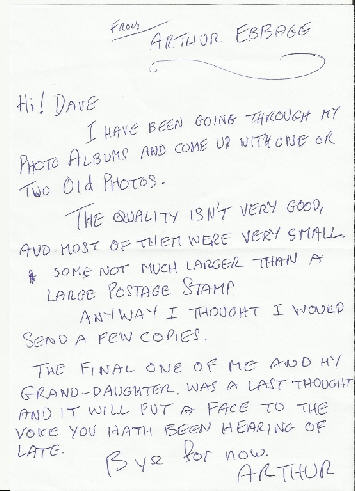 From
ARTHUR EBBAGE
Hi! DAVE
I HAVE BEEN GOING THROUGH MY
PHOTO ALBUMS AND COME UP WITH ONE OR
TWO Old PHOTOS.
THE QUALITY ISN'T VERY GOOD,
AND MOST OF THEM WERE VERY SMALL
SOME NOT MUCH LARGER THAN A
LARGE POSTAGE STAMP
ANYWAY I THOUGHT I WOULD
SEND A FEW COPIES.
THE FINAL ONE OF ME AND MY
GRAND-DAUGHTER. WAS A LAST THOUGHT
AND IT WILL PUT A FACE TO THE
VOICE YOU HATH BEEN HEARING OF
LATE.
Bye for now.
ARTHUR